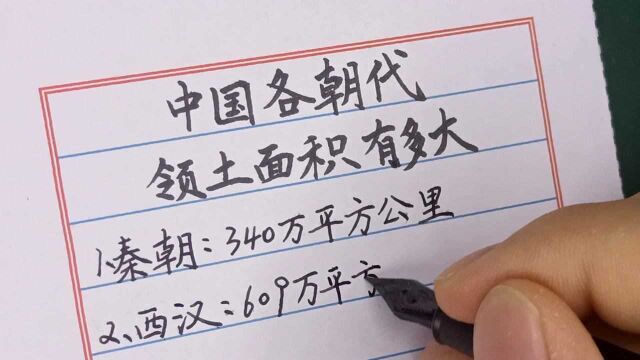 中国各朝代
领土面积有多大
1.秦朝:340万平方公里
2.西汉:609万平方